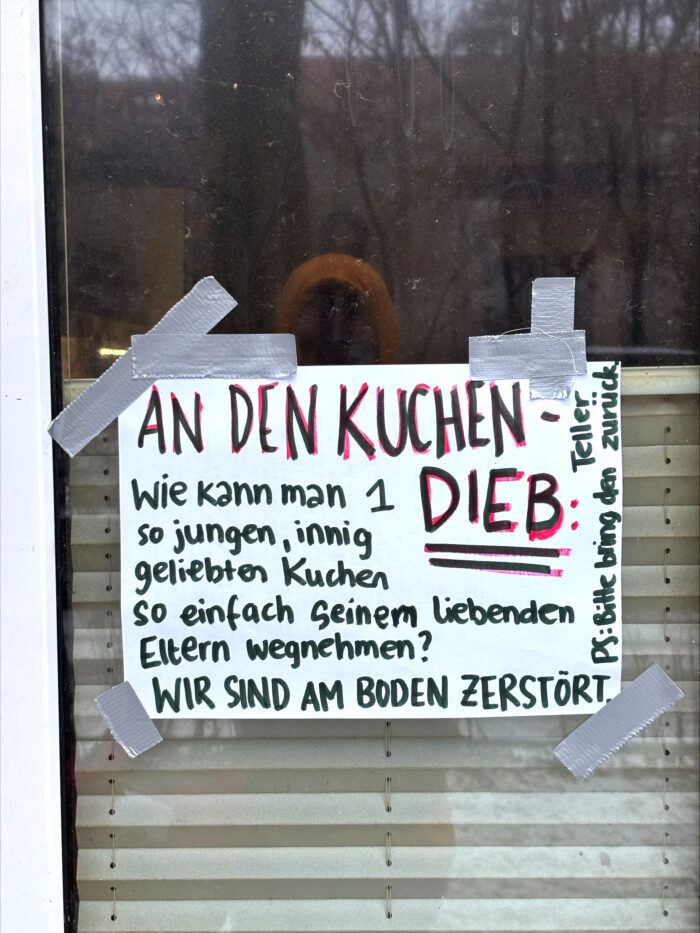 AN DEN KUCHEN-
DIEB:
Wie kann man 1
so jungen, innig
geliebten Kuchen
so einfach seinem liebenden
Eltern wegnehmen?
WIR SIND AM BODEN ZERSTÖRT.
PS: Bitte bring den Teller
zurück